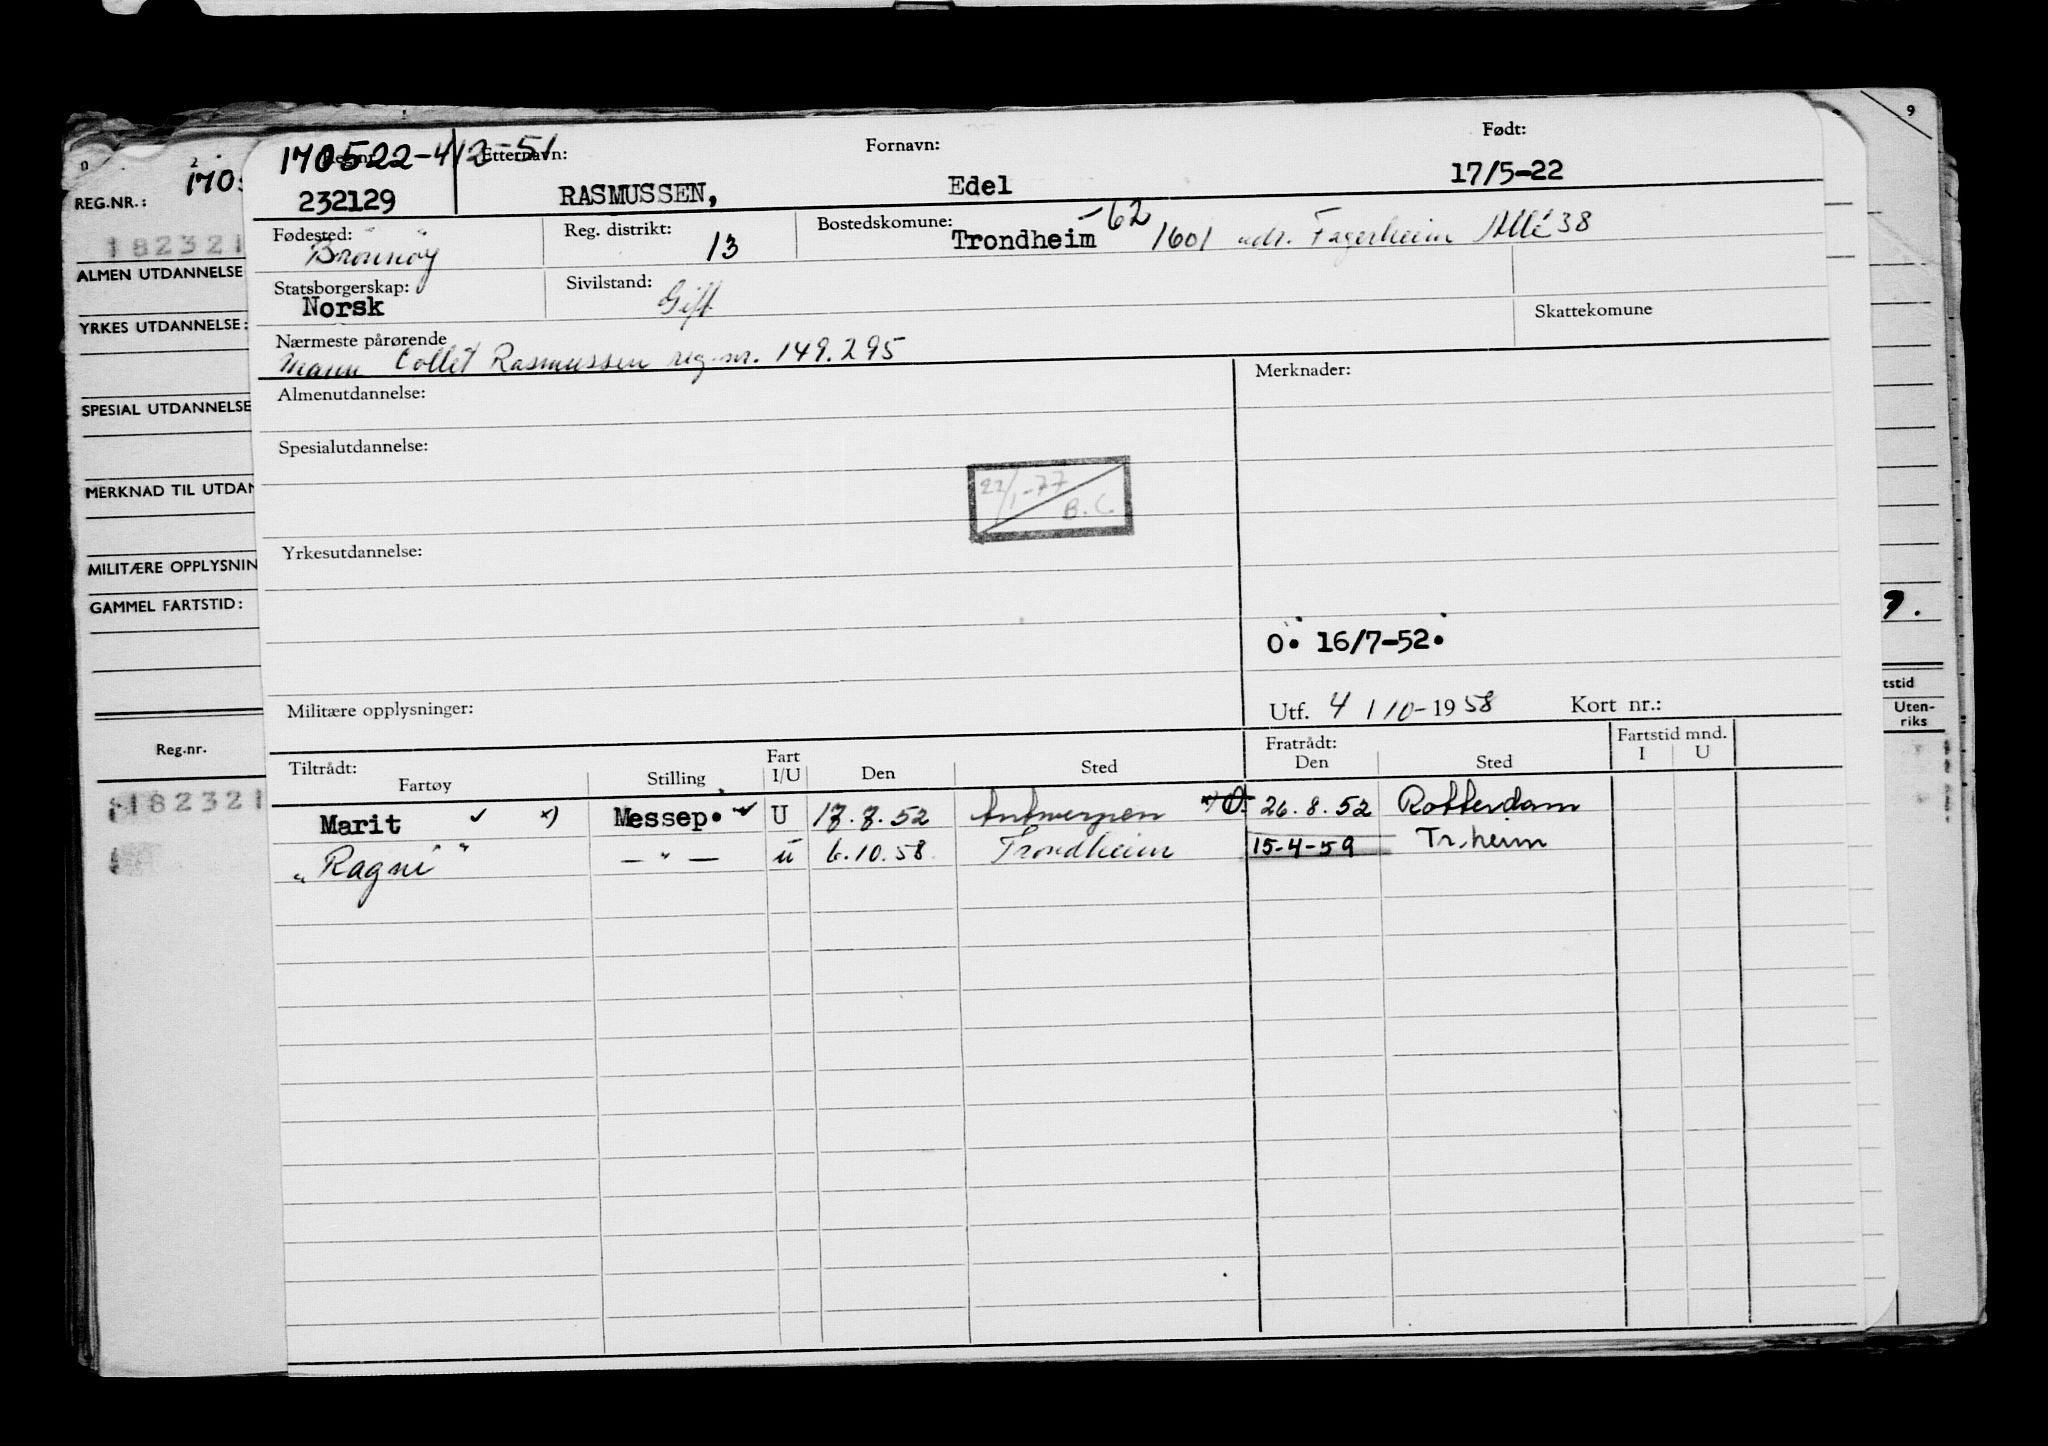 170522-412-51
Reg.nr. Etternavn: Fornavn: Født:
232129 RASMUSSEN, Edel 17/5-22
Fødested: Brønnøy Reg. distrikt: 13 Bostedskomune: Trondheim -62 1601 adr. Fagerheim Allé 38
Statsborgerskap: Norsk Sivilstand: Gift
Skattekomune
Nærmeste pårørende
Mann Collet Rasmussen reg.nr. 149.295
Almenutdannelse: Merknader:
Spesialutdannelse:
22/1-77 B.C.
Yrkesutdannelse:
O. 16/7-52.
Militære opplysninger: Utf. 4/10-1958 Kort nr.:
Tiltrådt: Fart Fratrådt: Fartstid mnd.
Fartøy Stilling I/U Den Sted Den Sted I U
Marit ✓ x) Messep. ✓ U Antwerpen x) O. 26.8.52 Rotterdam
"Ragni" — " — u 6.10.58. Trondheim 15-4-59 Tr.heim
0 2 170
REG.NR.:
182321
ALMEN UTDANNELSE
YRKES UTDANNELSE:
SPESIAL UTDANNELSE
MERKNAD TIL UTDAN
MILITÆRE OPPLYSNIN
GAMMEL FARTSTID:
Reg.nr.
182321
9
7.
tstid
Uten-
riks